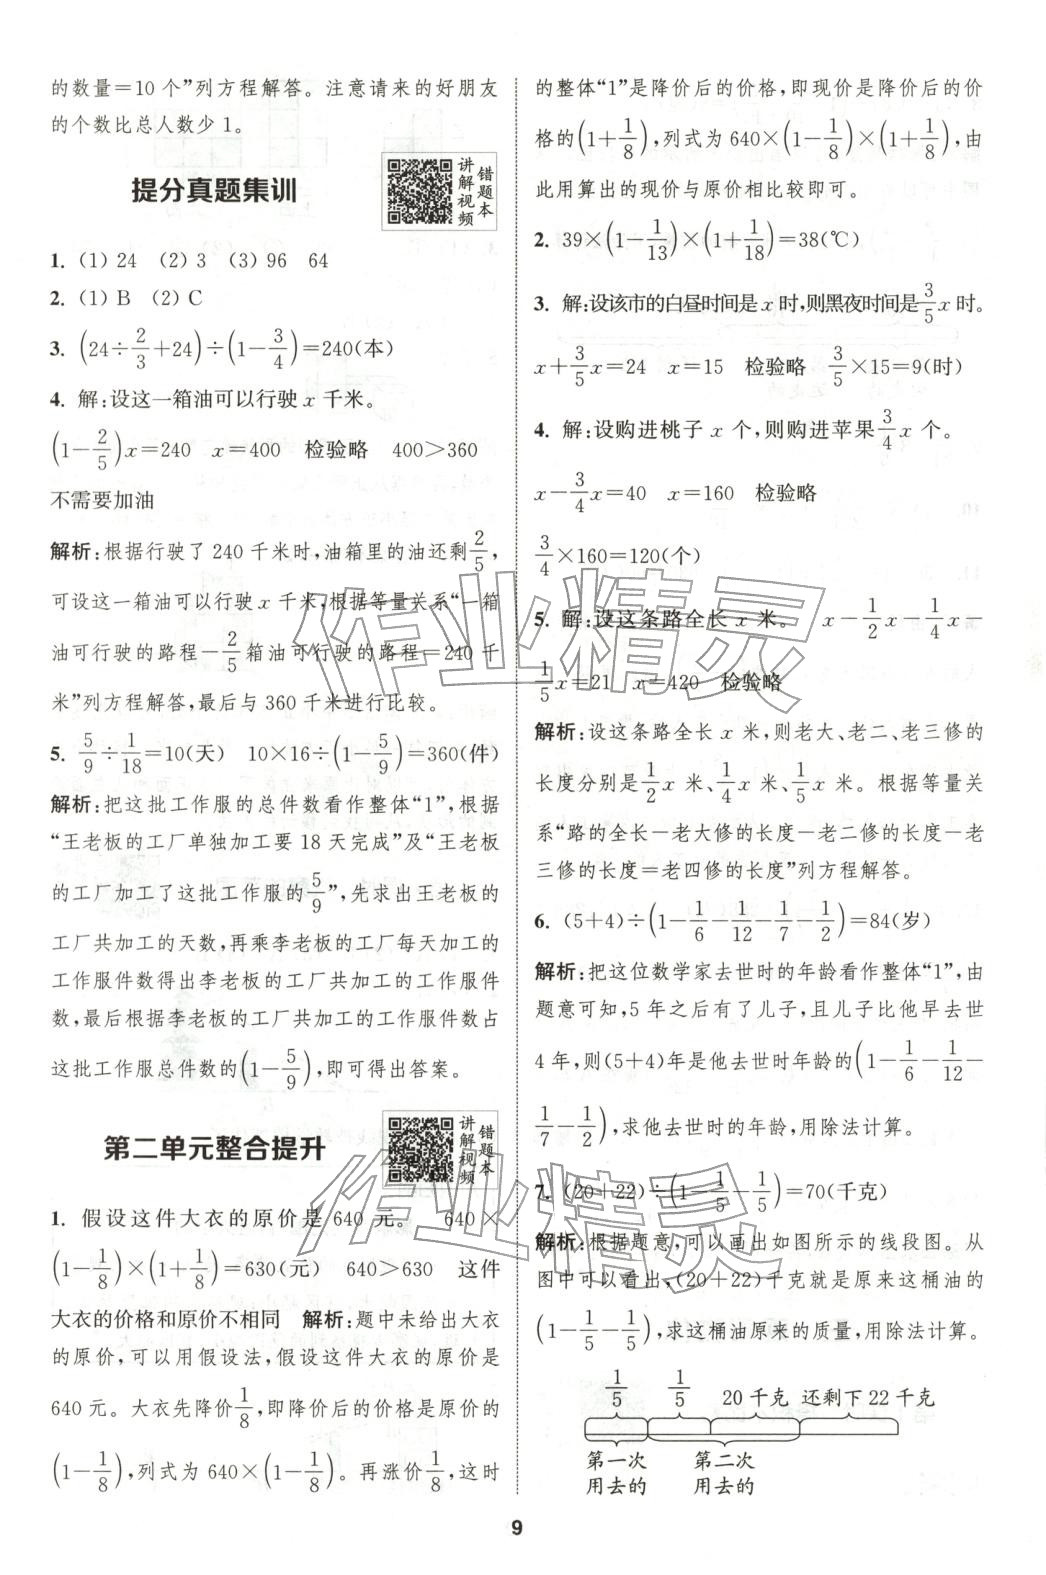 的数量=10 个”列方程解答。注意请来的好朋友
的个数比总人数少 1。
提分真题集训
讲解视频
错题本
1. (1) 24 (2) 3 (3) 96 64
2. (1) B (2) C
3. (24÷2/3+24)÷(1-3/4)=240(本)
4. 解:设这一箱油可以行驶 x 千米。
(1-2/5)x=240 x=400 检验略 400>360
不需要加油
解析:根据行驶了 240 千米时,油箱里的油还剩2/5,
可设这一箱油可以行驶 x 千米,根据等量关系“一箱
油可行驶的路程-2/5箱油可行驶的路程=240 千
米”列方程解答,最后与 360 千米进行比较。
5. 5/9÷1/18=10(天) 10×16÷(1-5/9)=360(件)
解析:把这批工作服的总件数看作整体“1”,根据
“王老板的工厂单独加工要 18 天完成”及“王老板
的工厂加工了这批工作服的5/9”,先求出王老板的
工厂共加工的天数,再乘李老板的工厂每天加工的
工作服件数得出李老板的工厂共加工的工作服件
数,最后根据李老板的工厂共加工的工作服件数占
这批工作服总件数的(1-5/9),即可得出答案。
第二单元整合提升
讲解视频
错题本
1. 假设这件大衣的原价是 640 元。 640×
(1-1/8)×(1+1/8)=630(元) 640>630 这件
大衣的价格和原价不相同 解析:题中未给出大衣
的原价,可以用假设法,假设这件大衣的原价是
640 元。大衣先降价1/8,即降价后的价格是原价的
(1-1/8),列式为 640×(1-1/8)。再涨价1/8,这时
的整体“1”是降价后的价格,即现价是降价后的价
格的(1+1/8),列式为 640×(1-1/8)×(1+1/8),由
此用算出的现价与原价相比较即可。
2. 39×(1-1/13)×(1+1/18)=38(℃)
3. 解:设该市的白昼时间是 x 时,则黑夜时间是3/5x 时。
x+3/5x=24 x=15 检验略 3/5×15=9(时)
4. 解:设购进桃子 x 个,则购进苹果3/4x 个。
x-3/4x=40 x=160 检验略
3/4×160=120(个)
5. 解:设这条路全长 x 米。 x-1/2x-1/4x-
1/5x=21 x=420 检验略
解析:设这条路全长 x 米,则老大、老二、老三修的
长度分别是1/2x 米、1/4x 米、1/5x 米。根据等量关
系“路的全长-老大修的长度-老二修的长度-老
三修的长度=老四修的长度”列方程解答。
6. (5+4)÷(1-1/6-1/12-1/7-1/2)=84(岁)
解析:把这位数学家去世时的年龄看作整体“1”,由
题意可知,5 年之后有了儿子,且儿子比他早去世
4 年,则(5+4)年是他去世时年龄的(1-1/6-1/12-
1/7-1/2),求他去世时的年龄,用除法计算。
7. (20+22)÷(1-1/5-1/5)=70(千克)
解析:根据题意,可以画出如图所示的线段图。从
图中可以看出,(20+22)千克就是原来这桶油的
(1-1/5-1/5),求这桶油原来的质量,用除法计算。
1/5 1/5 20 千克 还剩下 22 千克
第一次 第二次
用去的 用去的
9
作业精灵
作业精灵